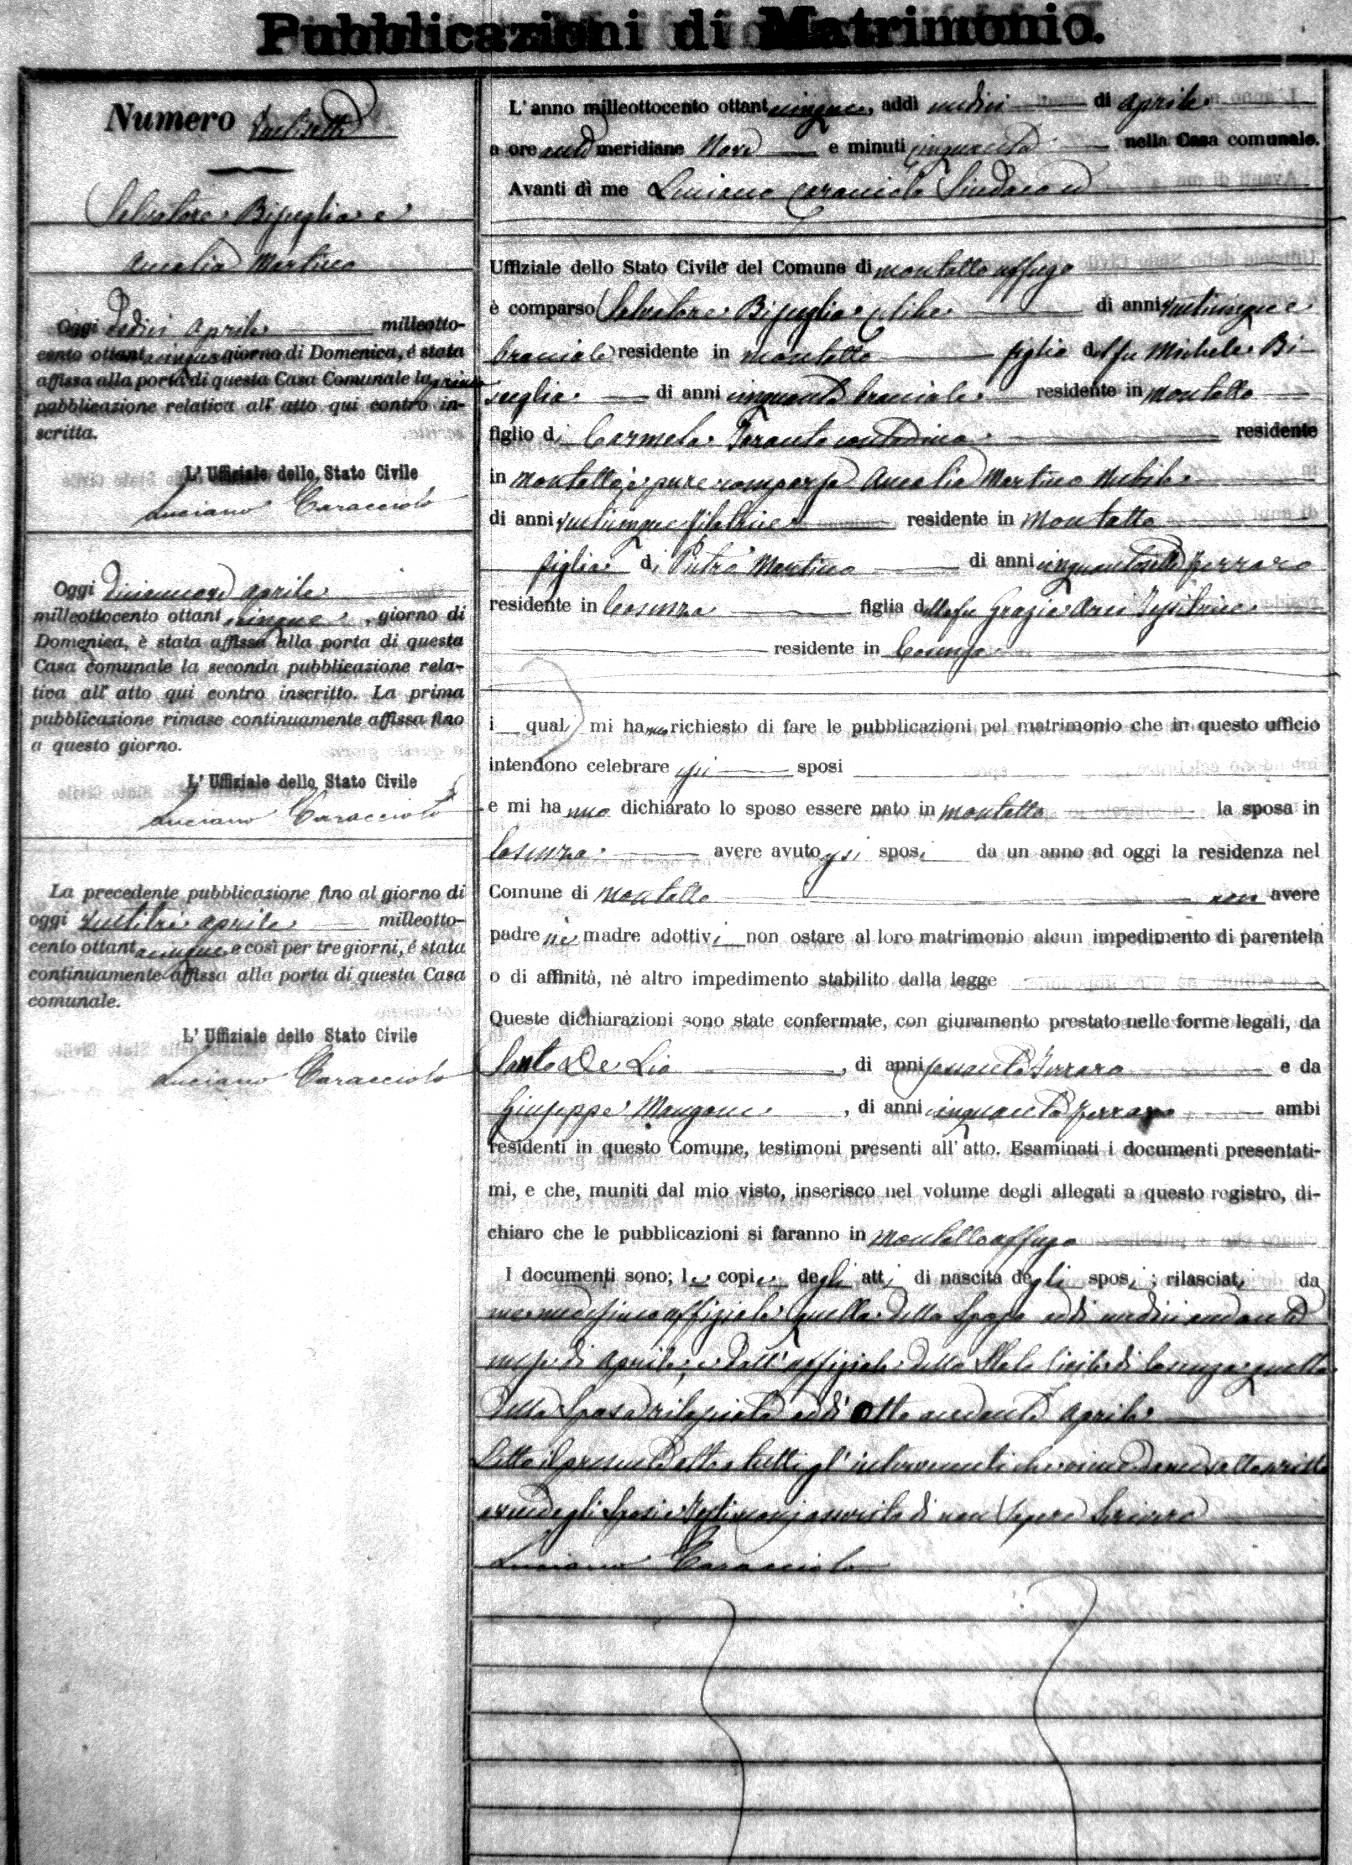 Pubblicazioni di Matrimonio.
Numero
Salvatore Bisuglia e
Amalia Martino
Oggi dodici Aprile milleotto-
cento ottant cinque giorno di Domenica, é stata
affissa alla porta di questa Casa Comunale la prima
pubblicazione relativa all' atto qui contro in-
scritta.
L' Uffiziale dello Stato Civile
Luciano Caracciolo
Oggi diciannove aprile
milleottocento ottant cinque, giorno di
Domenica, è stata affissa alla porta di questa
Casa comunale la seconda pubblicazione rela-
tiva all' atto qui contro inscritto. La prima
pubblicazione rimase continuamente affissa fino
a questo giorno.
L' Uffiziale dello Stato Civile
Luciano Caracciolo
La precedente pubblicazione fino al giorno di
oggi ventitre aprile milleotto-
cento ottant cinque e così per tre giorni, é stata
continuamente affissa alla porta di questa Casa
comunale.
L' Uffiziale dello Stato Civile
Luciano Caracciolo
L' anno milleottocento ottant cinque, addì undici di Aprile
a ore anti meridiane Nove e minuti cinquanta nella Casa comunale.
Avanti di me Luciano Caracciolo Sindaco ed
Uffiziale dello Stato Civile del Comune di Montalto uffugo
è comparso Salvatore Bisuglia celibe di anni venticinque
bracciale residente in Montalto figlio del fu Michele Bi
suglia di anni cinquanta bracciale residente in Montalto
figlio di Carmela Taranto contadina residente
in Montalto; è pure comparsa Amalia Martino Nubile
di anni venticinque filatrice residente in Montalto
figlia di Pietro Martino di anni Ferraro
residente in Cosenza figlia della fu Grazia
residente in Cosenza
i qual mi hanno richiesto di fare le pubblicazioni pel matrimonio che in questo ufficio
intendono celebrare essi sposi
e mi hanno dichiarato lo sposo essere nato in Montalto la sposa in
Cosenza avere avuto essi sposi da un anno ad oggi la residenza nel
Comune di Montalto non avere
padre nè madre adottivi non ostare al loro matrimonio alcun impedimento di parentela
o di affinità, nè altro impedimento stabilito dalla legge
Queste dichiarazioni sono state confermate, con giuramento prestato nelle forme legali, da
Santo De Lio, di anni sessanta Ferraro e da
Giuseppe Mangone, di anni cinquanta ferraro ambi
residenti in questo Comune, testimoni presenti all' atto. Esaminati i documenti presentati-
mi, e che, muniti dal mio visto, inserisco nel volume degli allegati a questo registro, di-
chiaro che le pubblicazioni si faranno in Montalto uffugo
I documenti sono; le copie degli atti di nascita degli sposi; rilasciati da
me medesimo uffiziale quella dello Sposo addì undici andante
mese di Aprile, e dall' uffiziale dello Stato Civile di Cosenza quella
della Sposa rilasciata addì Otto andante Aprile
Letto il presente atto a tutti gl' intervenuti
avendo gli Sposi e Testimonj asserito di non sapere scrivere
Luciano Caracciolo